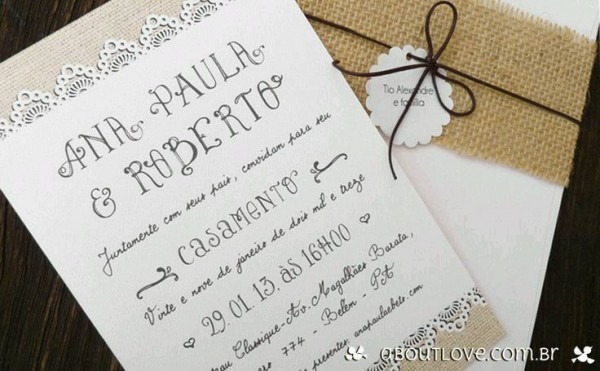 ANA PAULA
& ROBERTO
Juntamente com seus pais, convidam para seu
CASAMENTO
Vinte e nove de janeiro de dois mil e treze
29.01.13 às 16H00
Classique-Av. Magalhães Barata,
774 - Belém - PA
presentes: anapaulaebeto.com
Tio Alexandre
e família
aboutlove.com.br